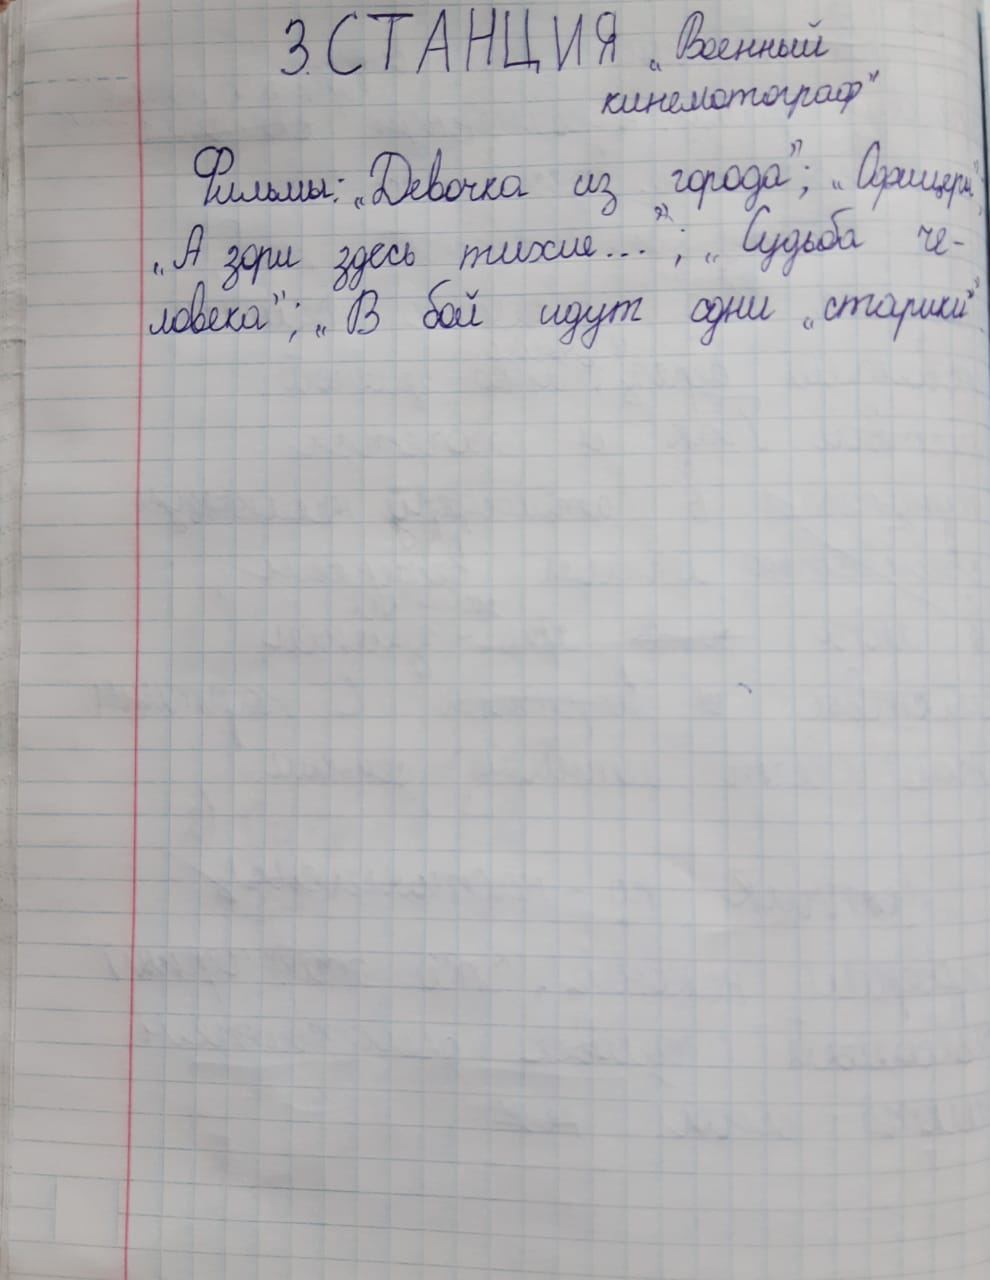 3. СТАНЦИЯ „Военный
кинематограф"
Фильмы: „Девочка из города"; „Офицеры";
„А зори здесь тихие..."; „Судьба че-
ловека"; „В бой идут одни „старики""